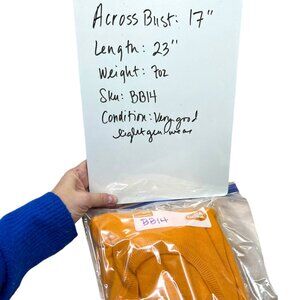 Across Bust: 17"
Length: 23"
Weight: 7oz
Sku: BB14
Condition: Very good
light gen wear
BB14